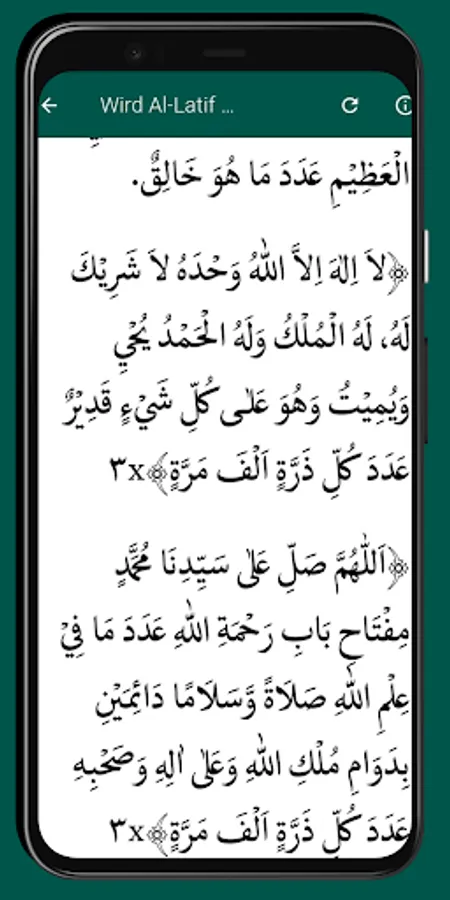 Wird Al-Latif ...
الْعَظِيْمِ عَدَدَ مَا هُوَ خَالِقٌ.
﴿لاَ اِلٰهَ اِلاَّ اللهُ وَحْدَهُ لاَ شَرِيْكَ
لَهُ، لَهُ الْمُلْكُ وَلَهُ الْحَمْدُ يُحْيِ
وَيُمِيْتُ وَهُوَ عَلٰى كُلِّ شَيْءٍ قَدِيْرٌ
عَدَدَ كُلِّ ذَرَّةٍ اَلْفَ مَرَّةٍ﴾٣x
﴿اَللّٰهُمَّ صَلِّ عَلٰى سَيِّدِنَا مُحَمَّدٍ
مِفْتَاحِ بَابِ رَحْمَةِ اللهِ عَدَدَ مَا فِيْ
عِلْمِ اللهِ صَلَاةً وَّسَلَامًا دَائِمَيْنِ
بِدَوَامِ مُلْكِ اللهِ وَعَلٰى اٰلِهِ وَصَحْبِهِ
عَدَدَ كُلِّ ذَرَّةٍ اَلْفَ مَرَّةٍ﴾٣x